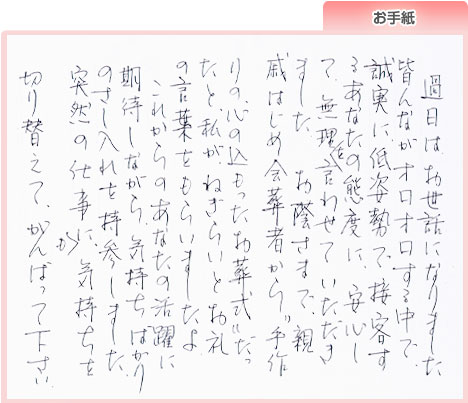 お手紙
過日は、お世話になりました
皆んながオロオロする中で、
誠実に低姿勢で、接客す
るあなたの態度に、安心し
て、無理を言わせていただき
ました。お蔭さまで、親
戚はじめ会葬者から〝手作
りの心の込もったお葬式〟だっ
たと、私が、ねぎらいとお礼
の言葉をもらいましたよ。
これからのあなたの活躍に
期待しながら、気持ちばかり
のさし入れを持参しました。
突然の仕事にか気持ちを
切り替えて、がんばって下さい